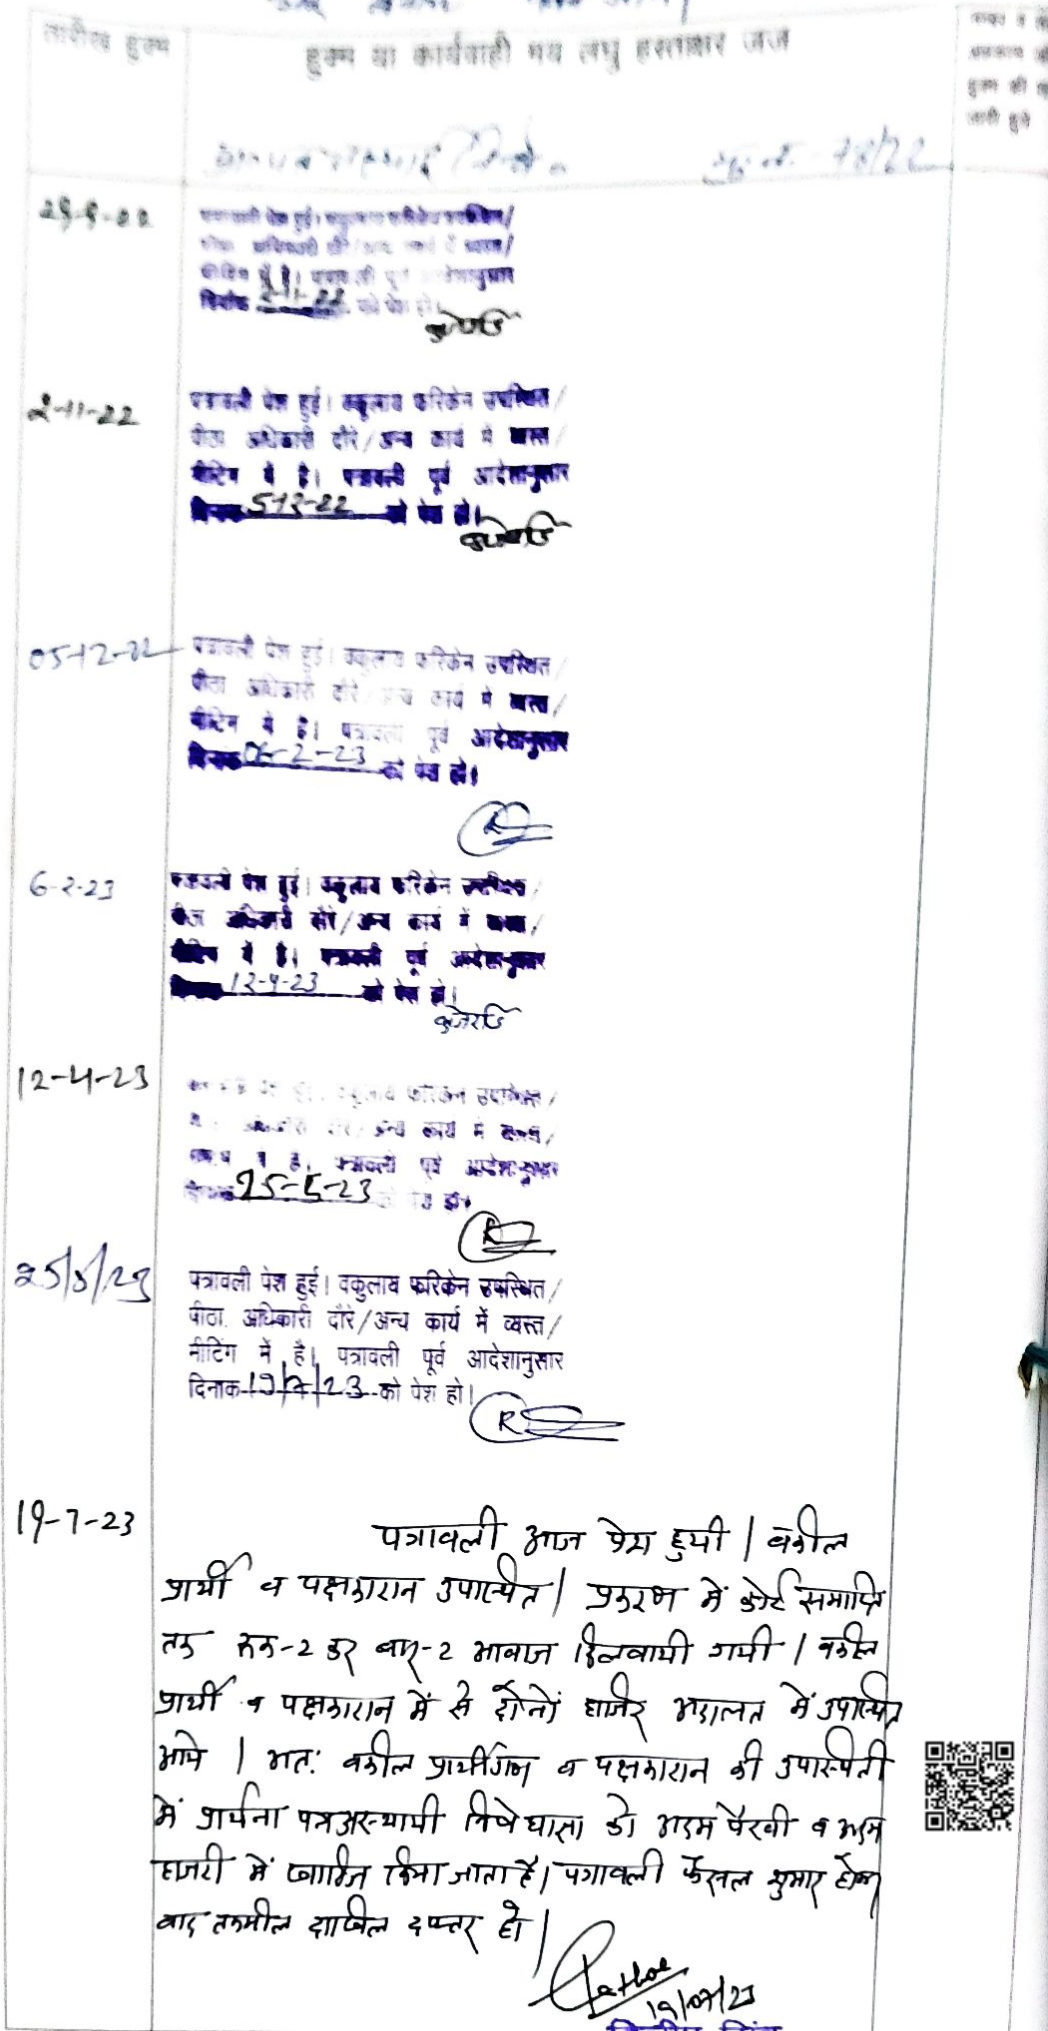 तारीख हुक्म
हुक्म या कार्यवाही मय लघु हस्ताक्षर जज
हुक्म की
जारी हुये
78/22
पत्रावली पेश हुई। वकुलाय फरिकेन उपस्थित/
पीठा अधिकारी दौरे/अन्य कार्य में व्यस्त/
मीटिंग में है। पत्रावली पूर्व आदेशानुसार
दिनांक 2-11-22 को पेश हो।
2-11-22
पत्रावली पेश हुई। वकुलाय फरिकेन उपस्थित/
पीठा अधिकारी दौरे/अन्य कार्य में व्यस्त/
मीटिंग में है। पत्रावली पूर्व आदेशानुसार
दिनांक 5-12-22 को पेश हो।
05-12-22
पत्रावली पेश हुई। वकुलाय फरिकेन उपस्थित/
पीठा अधिकारी दौरे/अन्य कार्य में व्यस्त/
मीटिंग में है। पत्रावली पूर्व आदेशानुसार
दिनांक 06-2-23 को पेश हो।
R
6-2-23
पत्रावली पेश हुई। वकुलाय फरिकेन उपस्थित/
पीठा अधिकारी दौरे/अन्य कार्य में व्यस्त/
मीटिंग में है। पत्रावली पूर्व आदेशानुसार
दिनांक 12-4-23 को पेश हो।
12-4-23
पत्रावली पेश हुई। वकुलाय फरिकेन उपस्थित/
पीठा अधिकारी दौरे/अन्य कार्य में व्यस्त/
मीटिंग में है। पत्रावली पूर्व आदेशानुसार
दिनांक 25-5-23 को पेश हो।
R
25/5/23
पत्रावली पेश हुई। वकुलाय फरिकेन उपस्थित/
पीठा. अधिकारी दौरे/अन्य कार्य में व्यस्त/
मीटिंग में है। पत्रावली पूर्व आदेशानुसार
दिनाक 19/7/23 को पेश हो।
R
19-7-23
पत्रावली आज पेश हुयी। वकील
प्रार्थी व पक्षकारान उपस्थित। प्रकरण में कोर्ट समाप्ति
तक रूक-2 कर बार-2 आवाज दिलवायी गयी। वकील
प्रार्थी व पक्षकारान में से दोनों हाजिर अदालत में उपस्थित
आये। अत: वकील प्रार्थीगण व पक्षकारान की उपास्थिती
में प्रार्थना पत्र अस्थायी निषेधाज्ञा को अदम पैरवी व अदम
हाजरी में खारिज किया जाता है। पत्रावली फैसल सुमार होकर
बाद तकमील दाखिल दफ्तर हो।
19/07/23